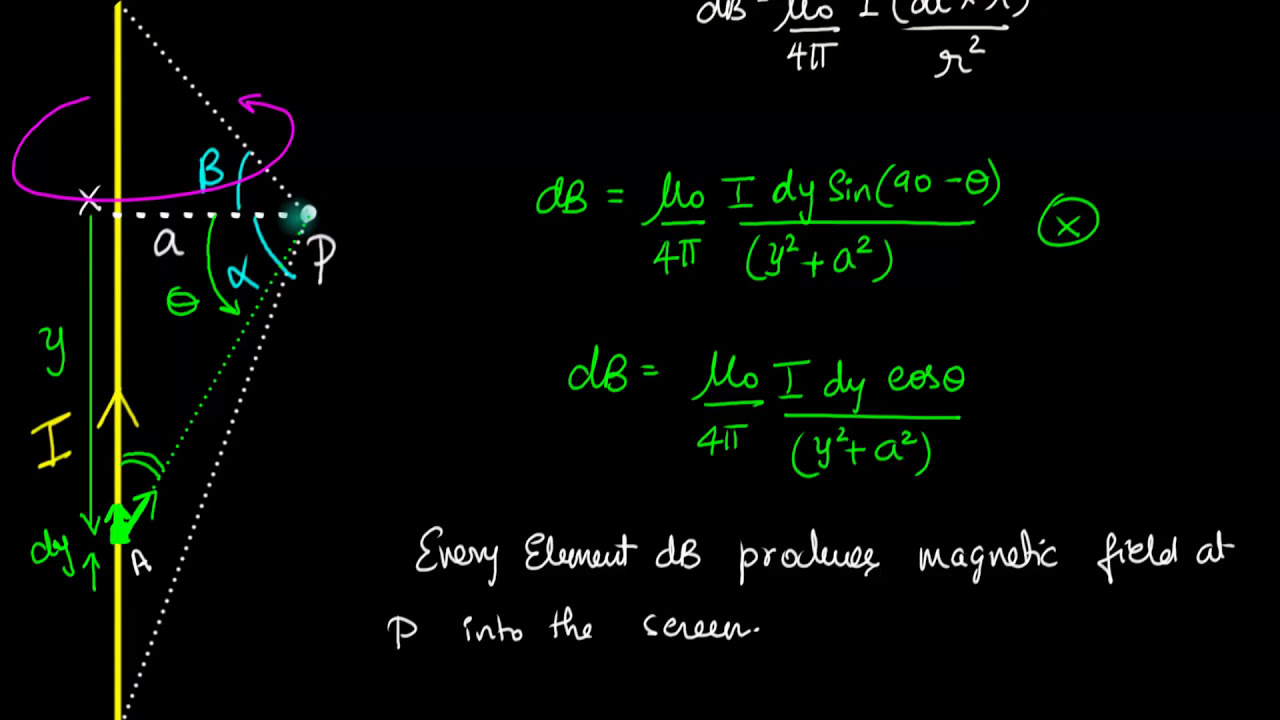 dB = μ₀/4π I (dl × r)/r²
β
X
a
P
α
θ
dB = μ₀/4π I dy Sin(90 - θ)/(y² + a²) ⓧ
y
dB = μ₀/4π I dy cosθ/(y² + a²)
I
dy
A
Every Element dB produces magnetic field at
P into the screen.